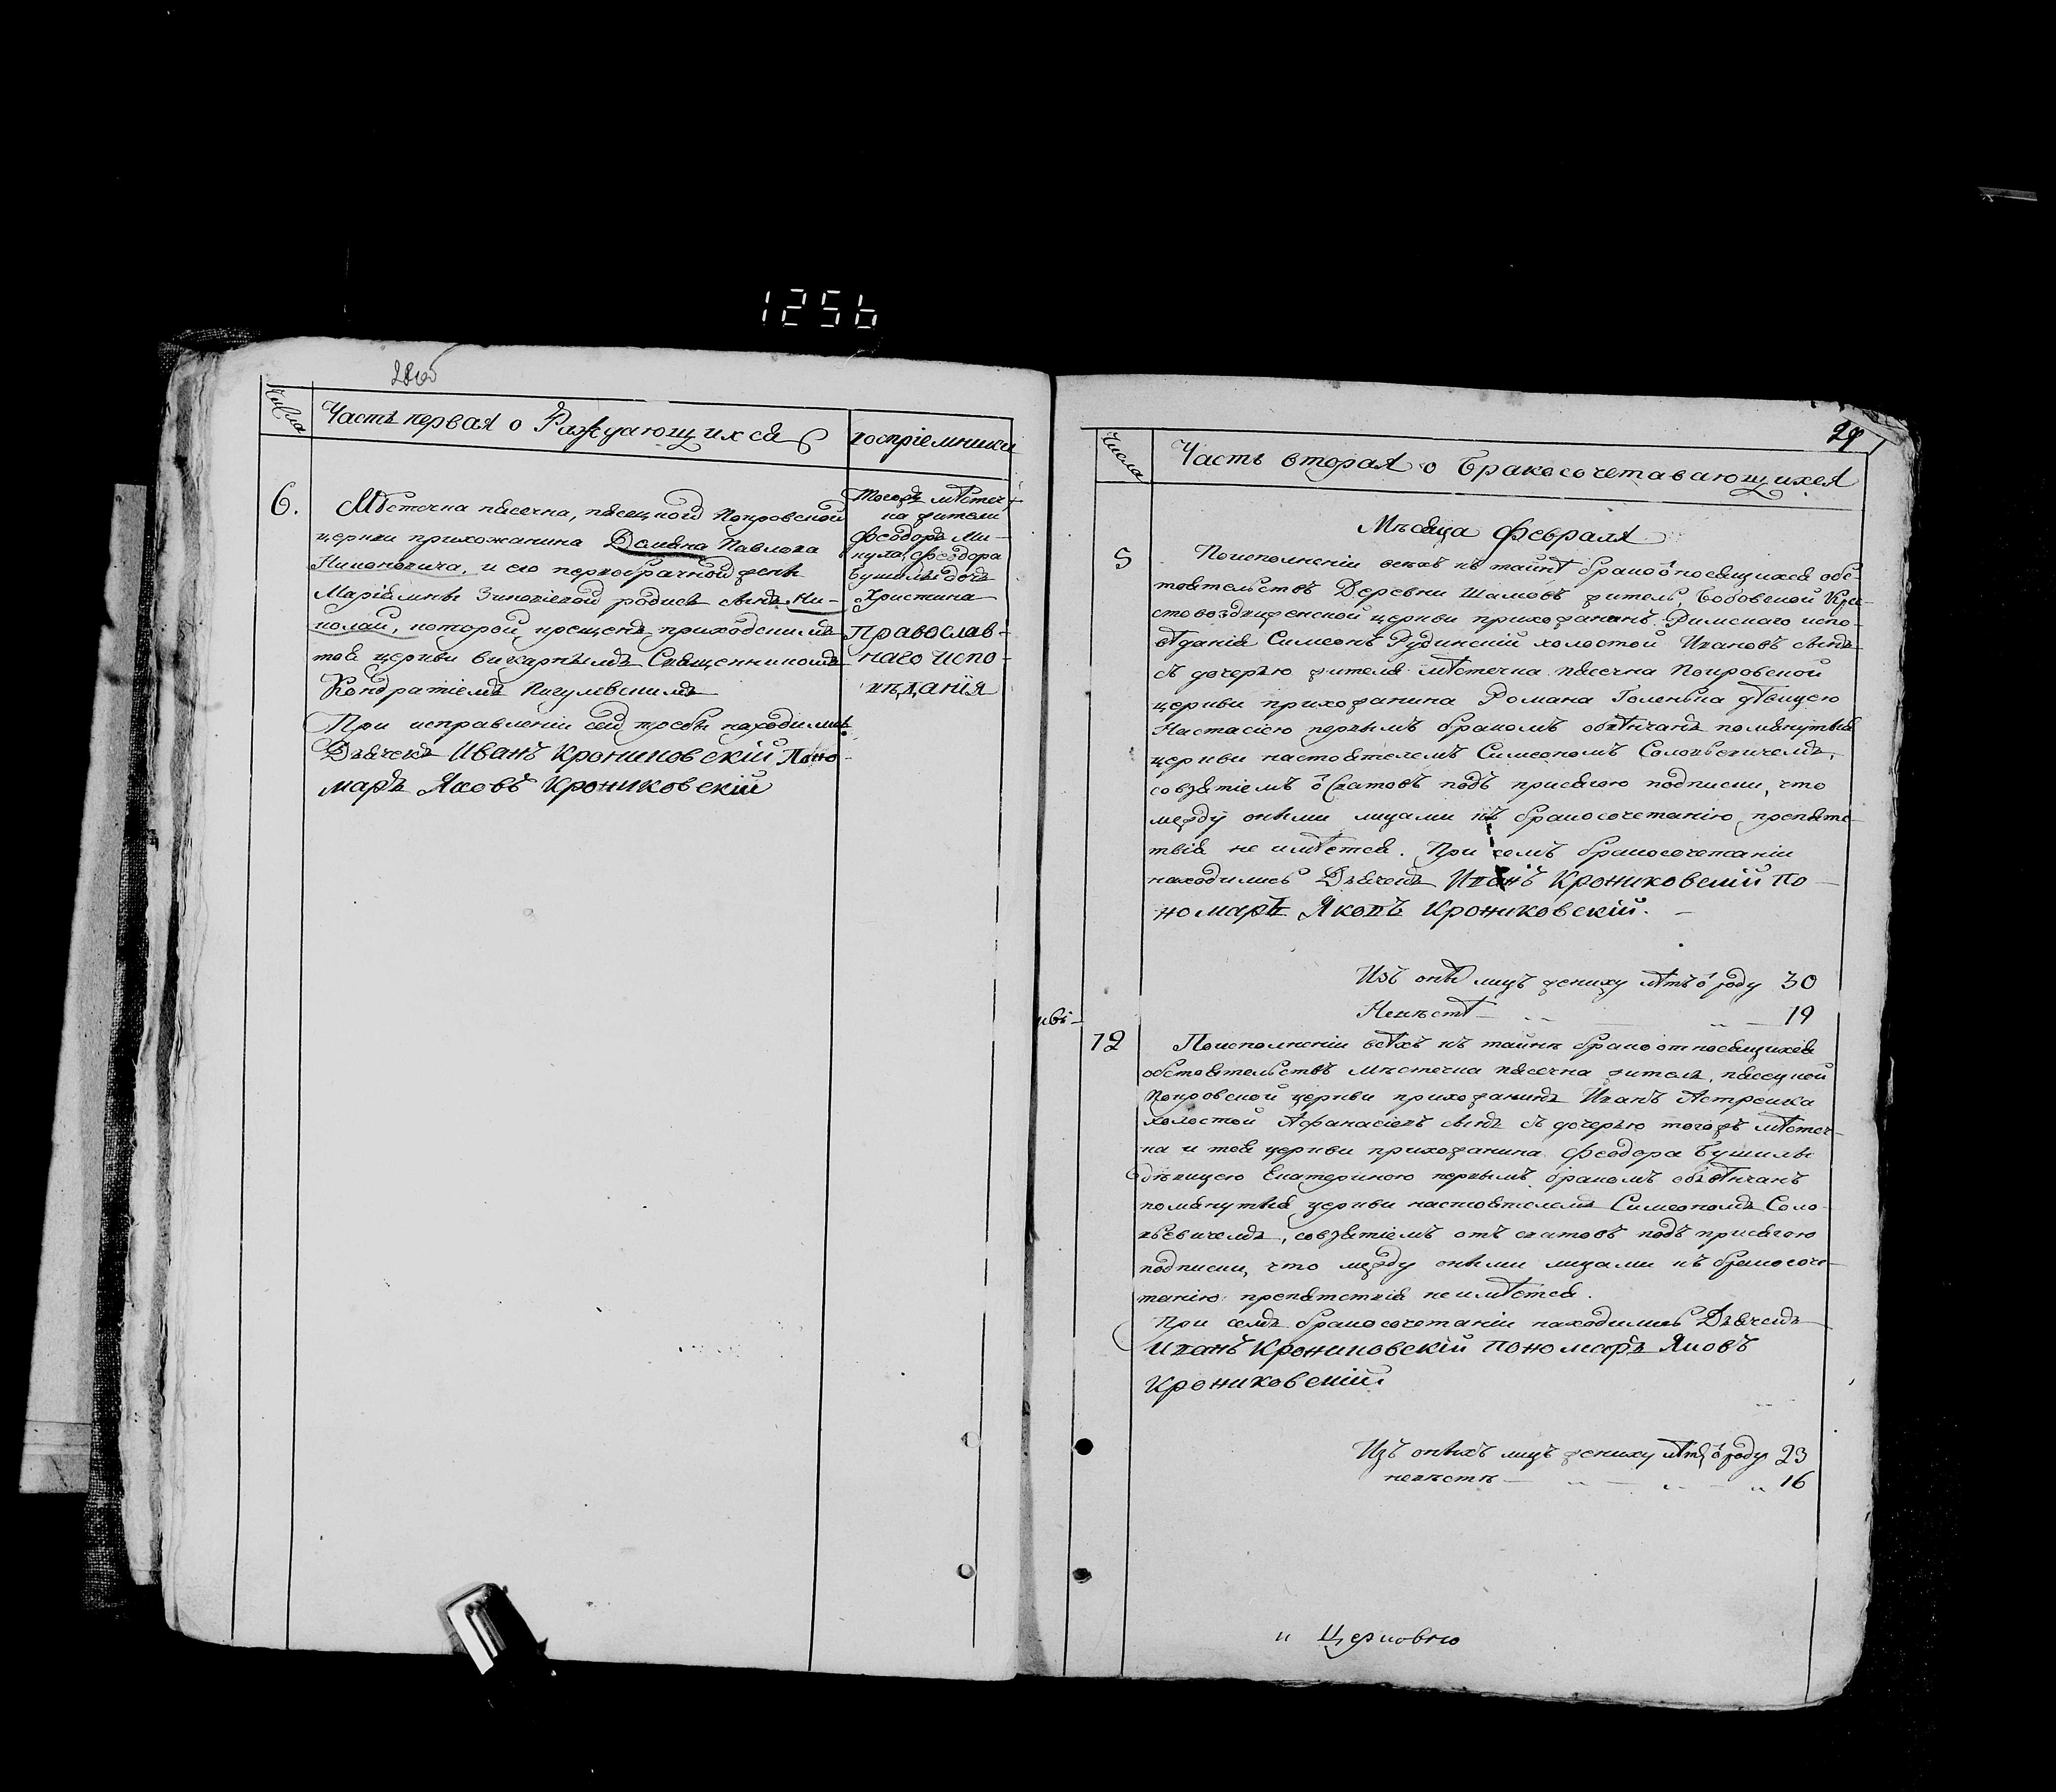 1256
28об
Числа
Часть первая о Раждающихся
воспріемники
6.
Мѣстечка пясечна, пясецкой Покровской
церкви прихожанина Домяна Павлова
Никоновича, и его первобрачной женѣ
Маріямнѣ Зиновіевой родися сынъ Ни-
колай, которой крещенъ приходскимъ
тоя церкви викарнымъ Священникомъ
Кондратіемъ Пигулевскимъ
При исправленіи сей требы находились
Дьячекъ Иванъ Крониковскій Поно-
маръ Яковъ Крониковскій
Тогожъ мѣстеч-
ка жители
Феодоръ Ми-
кула, Феодора
Бушилы дочь
Христина
Православ-
наго испо-
вѣданія
29
Числа
Часть вторая о Бракосочетавающихся
Мѣсяца Февраля
5
Поисполненіи всѣхъ къ тайнѣ брака относящихся обс-
тоятельствъ Деревни Шамовъ житель Бобовской Кре-
стовоздвиженской церкви прихожанинъ Римскаго испо-
вѣданія Симеонъ Рудинскій холостой Ивановъ сынъ
съ дочерью жителя мѣстечка пясечна Покровской
церкви прихожанина Романа Голенька дѣвицею
Настасіею первымъ бракомъ обвѣнчанъ помянутыя
церкви настоятелемъ Симеономъ Соловьевичемъ,
совзятіемъ о Сватовъ подъ присягою подписки, что
между оными лицами къ бракосочетанію препятс-
твія не имѣется. При семъ бракосочетаніи
находились Дьячекъ Иванъ Крониковскій По-
номаръ Яковъ Крониковскій.
Изъ онѣ лицъ жениху лѣтъ о роду 30
Невѣстѣ 19
12
Поисполненіи всѣхъ къ тайнѣ брака относящихся
обстоятельствъ мѣстечка пясечна житель, пясецкой
Покровской церкви прихожанинъ Иванъ Астрейка
холостой Афанасіевъ сынъ съ дочерью тогожъ мѣстеч-
ка и тоя церкви прихожанина Феодора Бушилы
дѣвицею Екатериною первымъ бракомъ обвѣнчанъ
помянутыя церкви настоятелемъ Симеономъ Соло-
вьевичемъ, совзятіемъ отъ сватовъ подъ присягою
подписки, что между оными лицами къ бракосоче-
танію препятствія неимѣется.
При семъ бракосочетаніи находились Дьячекъ
Иванъ Крониковскій Пономаръ Яковъ
Крониковскій.
Изъ оныхъ лицъ жениху лѣтъ о роду 23
невѣстѣ 16
и Церковно